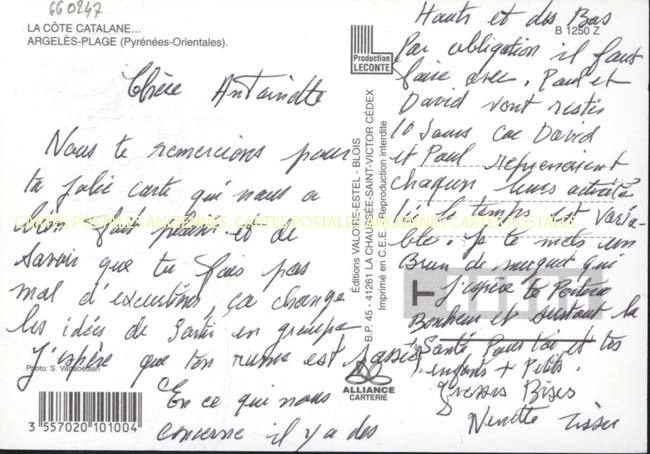 660247
LA CÔTE CATALANE...
ARGELÈS-PLAGE (Pyrénées-Orientales).
Chère Antoinette
Nous te remercions pour
ta jolie carte qui nous a
bien fait plaisir et de
savoir que tu fais pas
mal d'excurtions, ça change
les idées de Sortir en groupe
J'espère que ton rume est passé
En ce qui nous
concerne il y a des
Hauts et des Bas
Par obligation il faut
faire avec. Paul et
David sont restés
10 Jours car David
et Paul reprenaient
chaqun leurs activité
le temps est varia
ble. Je te mets un
Brun de muguet qui
J'espère te Portera
Bonheur et surtout la
Santé Pour toi et tes
enfants + Petits.
Grosses Bises
Ninette
B 1250 Z
Production
LECONTE
Éditions VALOIRE-ESTEL - BLOIS
B.P. 45 - 41261 LA CHAUSSÉE-SAINT-VICTOR CÉDEX
Imprimé en C.E.E. - Reproduction interdite
ALLIANCE
CARTERIE
Photo: S. Vartabedian
3 557020 101004
CARTES POSTALES ANCIENNES CARTES POSTALES ANCIENNES CARTES POSTALES